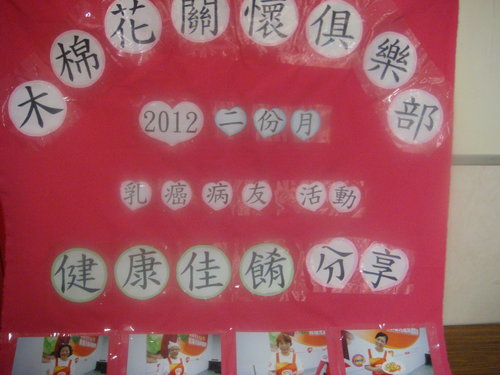 木棉花關懷俱樂部
2012 二份月
乳癌病友 活動
健康佳餚分享